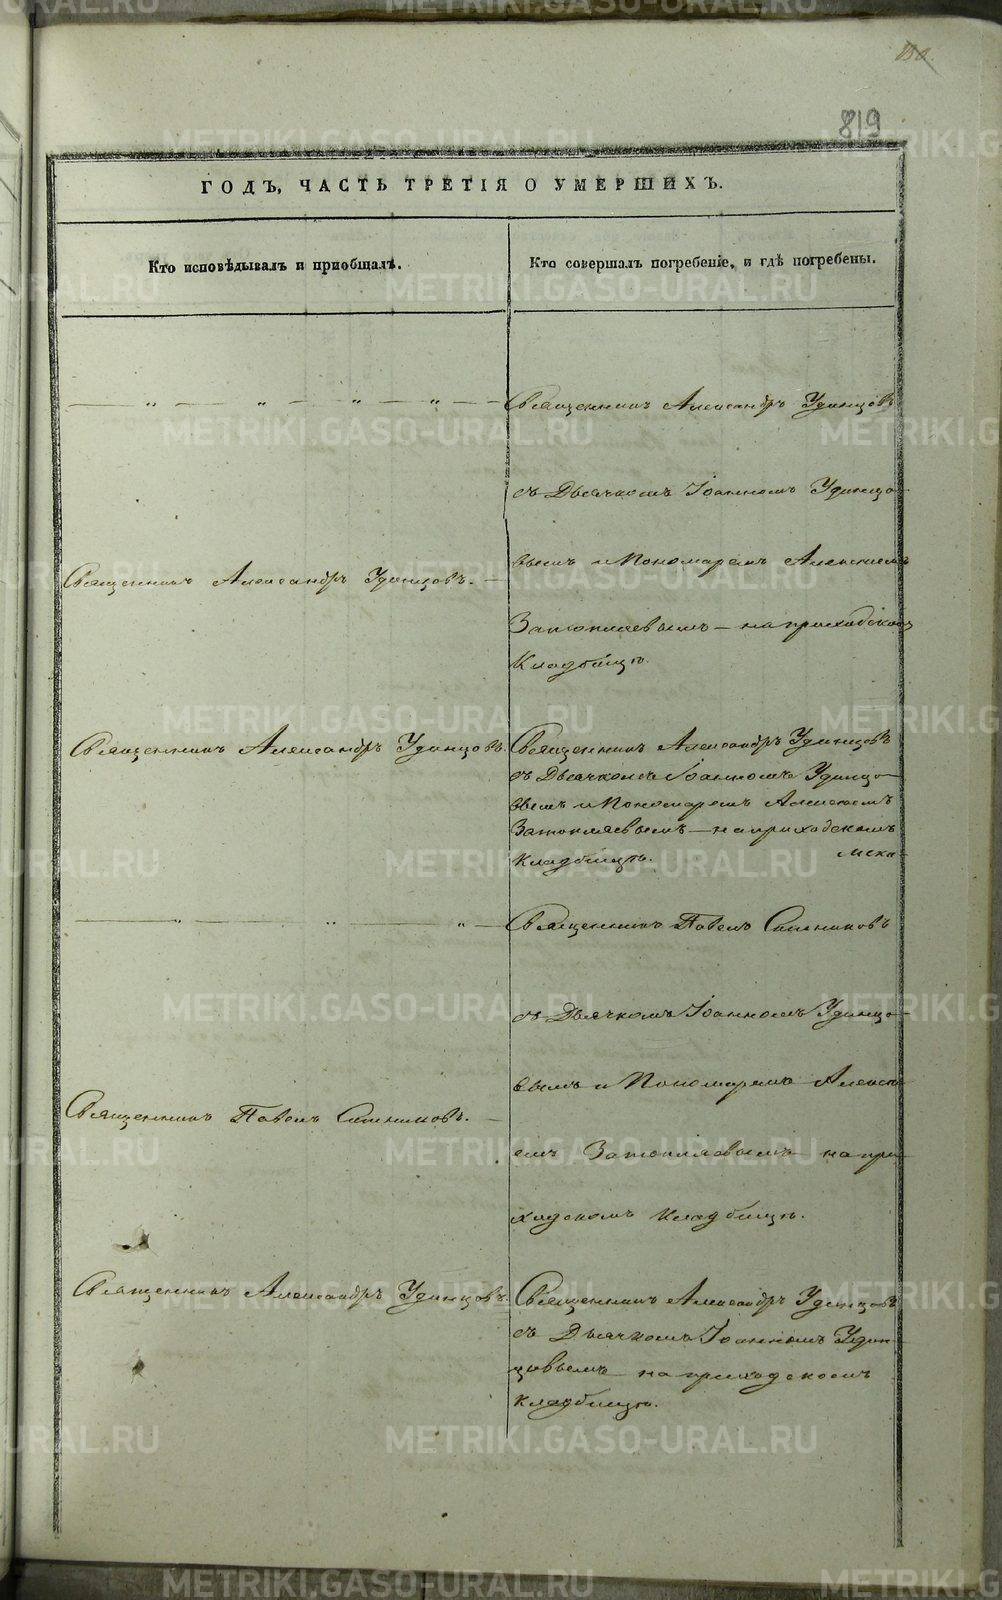 150.
819
ГОДЪ, ЧАСТЬ ТРЕТІЯ О УМЕРШИХЪ.
Кто исповѣдывалъ и пріобщалъ.
Кто совершалъ погребеніе, и гдѣ погребены.
Священникъ Александръ Удинцовъ
съ Дьячкомъ Іоанномъ Удинцо-
вымъ и Пономаремъ Алексіемъ
Священникъ Александръ Удинцовъ.
на приходскомъ
Кладбищѣ.
Священникъ Александръ Удинцовъ.
Священникъ Александръ Удинцовъ
съ Дьячкомъ Іоанномъ Удинцо-
вымъ и Пономаремъ Алексіемъ
на приходскомъ
кладбищѣ.
Священникъ Павелъ Ситниковъ
съ Дьячкомъ Іоанномъ Удинцо-
вымъ и Пономаремъ Алексі-
Священникъ Павелъ Ситниковъ.
емъ на при-
ходскомъ кладбищѣ.
Священникъ Александръ Удинцовъ.
Священникъ Александръ Удинцовъ
съ Дьячкомъ Іоанномъ Удин-
цовымъ на приходскомъ
кладбищѣ.
METRIKI.GASO-URAL.RU